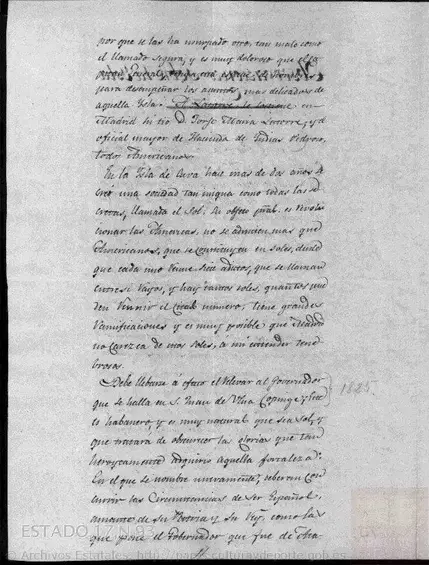 por que se las ha usurpado otro, tan malo como
el llamado Segura; y es muy doloroso que
para desempeñar los asuntos mas delicados de
aquella Isla. en
Madrid su tio D. Jorge Maria y el
oficial mayor de Hacienda de Indias Pedroso,
todos Americanos.
En la Isla de Cuva hace mas de dos años se
creó una sociedad tan iniqua como todas las se-
cretas, llamada el Sol. Su objeto pral. es revolu-
cionar las Americas, no se admiten mas que
Americanos, que se constituyen en soles, desde
que cada uno reune siete adictos, que se llaman
entre si rayos, y hay tantos soles, quantos pue-
den reunir el citado numero, tiene grandes
ramificaciones y es muy posible que
no carezca de esos soles, á mi entender tene-
brosos.
Debe llebarse á efecto el relevar al Governador
que se halla en S. Juan de Ulua Copinger;
es habanero, y es muy natural que sea sol, y
que tratara de obscurecer las glorias que tan
heroycamente adquirio aquella fortaleza.
En el que se nombre nuevamente, deberan con-
currir las circunstancias de ser Español,
amante de su Patria y su Rey, como las
que posee el Gobernador que fue de
1825.
ESTADO 17, N.93
© Archivos Estatales, http://pares.culturaydeporte.gob.es